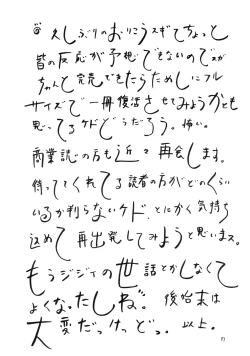 @ 久しぶりのおりこうスギでちょっと
皆の反応が予想できないのですが
ちゃんと完売できたらためしにフル
サイズで一冊復活させてみようかとも
思ってるケドどうだろう。怖い。
商業誌の方も近々再会します。
待っててくれてる読者の方がどのくらい
いるか判らないケド、とにかく気持ち
込めて再出発してみようと思いまス。
もうジジイの世話とかしなくて
よくなったしね。後始末は
大変だっけどっ。以上。